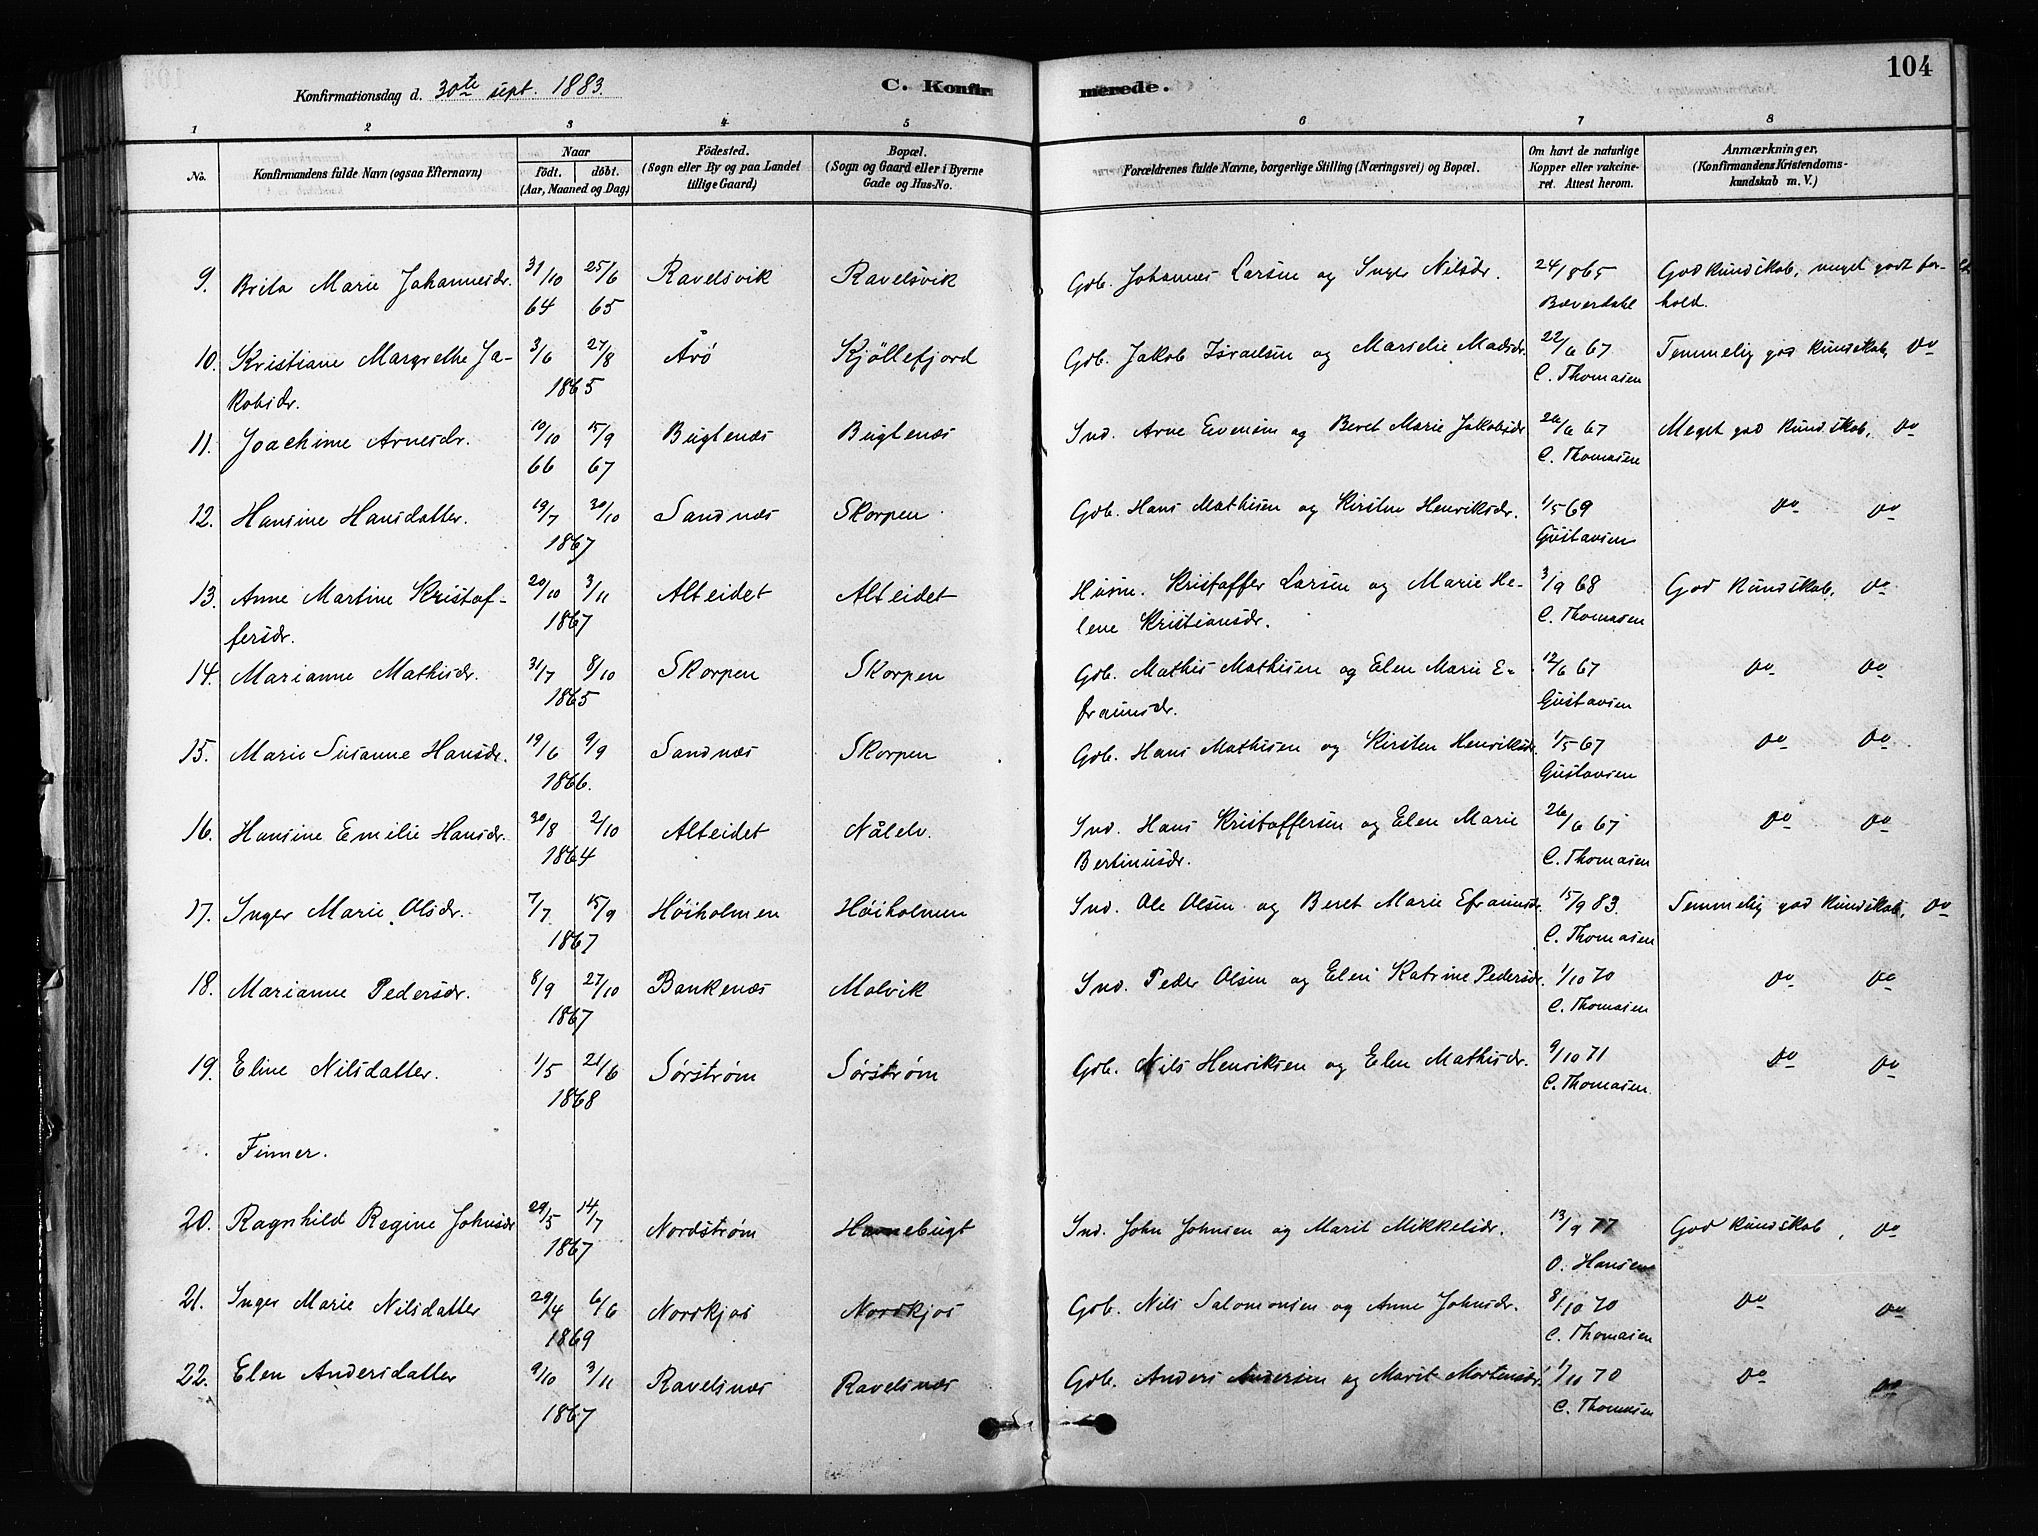 104
Konfirmationsdag d. 30te sept. 1883.
C. Konfirmerede.
1 2 3 4 5 6 7 8
No. Konfirmandens fulde Navn (ogsaa Efternavn) Naar Födt. döbt. (Aar, Maaned og Dag) Födested. (Sogn eller By og paa Landet tillige Gaard) Bopæl. (Sogn og Gaard eller i Byerne Gade og Hus-No. Forældrenes fulde Navne, borgerlige Stilling (Næringsvei) og Bopæl. Om havt de naturlige Kopper eller vakcineret. Attest herom. Anmærkninger, (Konfirmandens Kristendomskundskab m. V.)
9. Brita Marie Johannesdr. 31/10 25/6 Ravelsvik Ravelsvik Gdb. Johannes Larsen og Inger Nilsdr. 24/8 65 God kundskab, meget godt for-
64 65 Baverdahl hold.
10. Kristiane Margrethe Ja- 3/6 27/8 Årö Kjöllefjord Gdb. Jakob Israelsen og Marselie Madsdr. 22/6 67 Temmelig god kundskab, do
kobsdr. 1865 C. Thomasen
11. Joachime Arnesdr. 10/10 15/9 Bugtenæs Bugtenæs Ind. Arne Evensen og Beret Marie Jakobsdr 26/6 67 Meget god kundskab, do
66 67 C. Thomasen
12. Hansine Hansdatter. 19/7 20/10 Sandnæs Skorpen Gdb. Hans Mathisen og Kirsten Henriksdr. 1/5 69 do do
1867 Gustavsen
13. Anne Martine Kristof- 20/10 3/11 Alteidet Alteidet Husm. Kristoffer Larsen og Marie He- 3/9 68 God kundskab, do
fersdr. 1867 lene Kristiansdr. C. Thomasen
14. Marianne Mathisdr. 31/7 8/10 Skorpen Skorpen Gdb. Mathis Mathisen og Elen Marie E- 12/6 67 do do
1865 fraimsdr. Gustavsen
15. Marie Susanne Hansdr. 19/6 9/9 Sandnæs Skorpen Gdb. Hans Mathisen og Kirsten Henriksdr. 1/5 67 do do
1866. Gustavsen
16. Hansine Emilie Hansdr. 30/8 2/10 Alteidet Nålelv. Ind. Hans Kristoffersen og Elen Marie 26/6 67 do do
1864 Bertinusdr. C. Thomasen
17. Inger Marie Olsdr. 7/7 15/9 Høiholmen Høiholmen Ind. Ole Olsen og Beret Marie Efraimsdr. 15/9 83. Temmelig god kundskab, do
1867 C. Thomasen
18. Marianne Pedersdr. 8/9 27/10 Bankenæs Malvik Ind. Peder Olsen og Elen Katrine Pedersdr. 1/10 70 do do
1867 C. Thomasen
19. Eline Nilsdatter. 1/5 21/6 Sørstrøm Sørstrøm Gdb. Nils Henriksen og Elen Mathisdr. 9/10 71 do do
1868 C. Thomasen
Finner.
20. Ragnhild Regine Johnsdr 29/5 14/7 Nordstrøm Havnebugt Ind. John Johnsen og Marit Mikkelsdr. 13/9 77 God kundskab, do
1867 O. Hansen
21. Inger Marie Nilsdatter 29/4 6/6 Nordkjos Nordkjos Gdb. Nils Salomonsen og Anne Johnsdr. 8/10 70 do do
1869 C. Thomasen
22. Elen Andersdatter 9/10 3/11 Ravelsnæs Ravelsnæs Gdb. Anders Andersen og Marit Mortensdr. 1/11 70 do do
1867 C. Thomasen